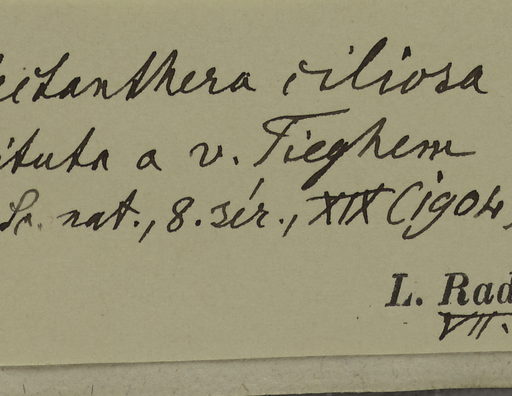 ctanthera ciliosa
ituta a v. Tieghem
Sc. nat., 8. sér., XIX (1904)
L. Rad
VII.